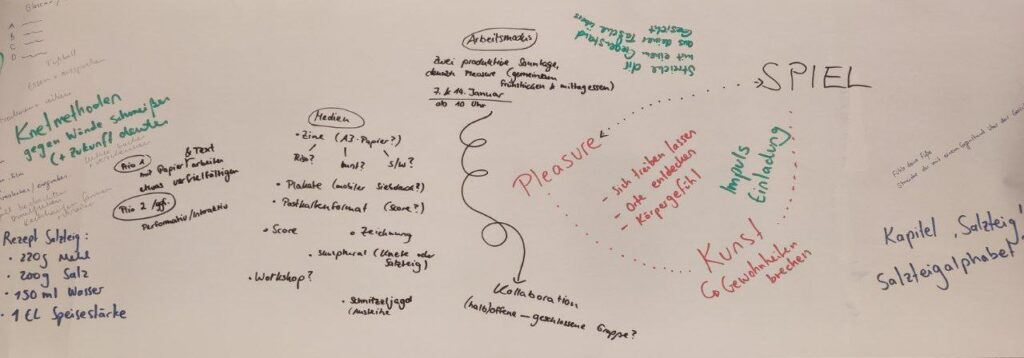 Glossar
A
B
C
D
Fußball
Knetmethoden
gegen Wände schmeißen
(+ Zukunft deuten
Prio 1
& Text
mit Papier arbeiten
etwas vervielfältigen
Prio 2 / ggf.
Performativ/Interaktiv
Rezept Salzteig:
• 220g Mehl
• 200g Salz
• 150 ml Wasser
• 1 EL Speisestärke
Medien
• Zine (A3-Papier?)
Riso?
bunt?
s/w?
• Plakate (mobiler Siebdruck?)
• Postkartenformat (Score?)
• Score
• Zeichnung
• skulptural (Knete oder
Salzteig)
• Workshop?
• Schnitzeljagd
Arbeitsmodus
Zwei produktive Sonntage,
danach Pleasure (gemeinsam
frühstücken & mittagessen)
7. & 14. Januar
ab 10 Uhr
Kollaboration
(halb/offene – geschlossene Gruppe?
Streiche dir
mit einem Gegenstand
aus deiner Tasche übers
Gesicht
SPIEL
Pleasure
- sich treiben lassen
- Orte entdecken
- Körpergefühl
Impuls
Einladung
Kunst
Gewohnheiten
brechen
Kapitel „Salzteig“
Salzteigalphabet